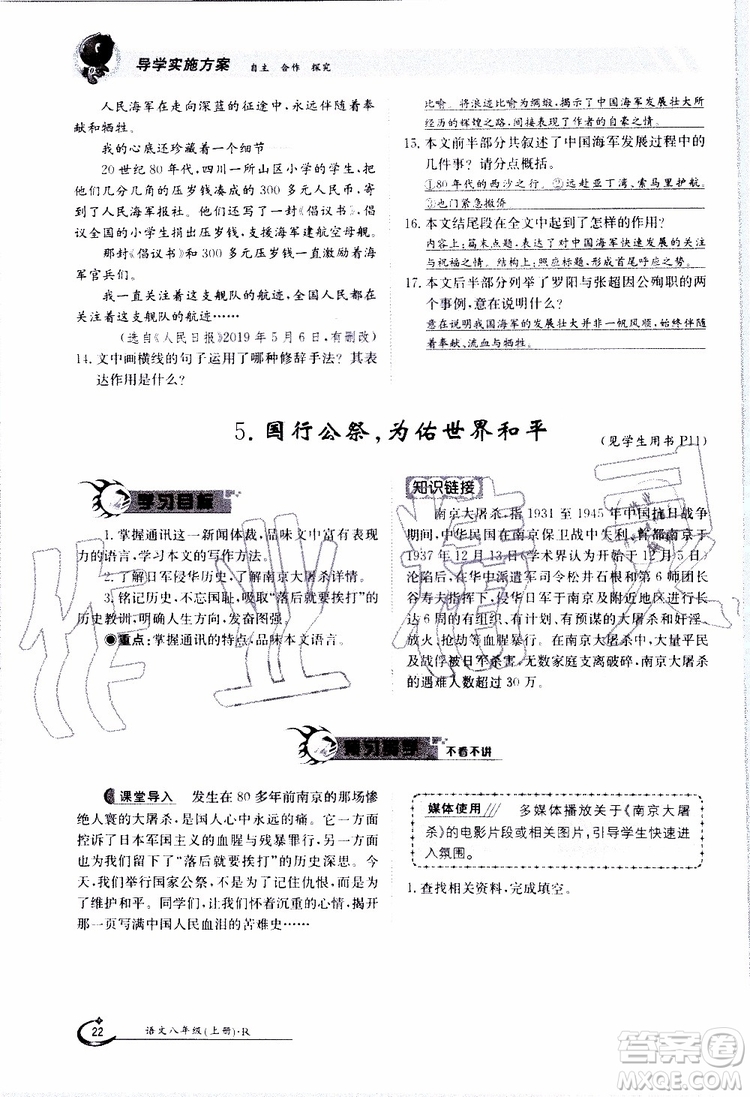 导学实施方案 自主 合作 探究
人民海军在走向深蓝的征途中，永远伴随着奉
献和牺牲。
我的心底还珍藏着一个细节——
20 世纪 80 年代，四川一所山区小学的学生，把
他们几分几角的压岁钱凑成的 300 多元人民币，寄
到了人民海军报社。他们还寄了一份《倡议书》，倡
议全国的小学生捐出压岁钱，支援海军建航空母舰。
那封《倡议书》和 300 多元压岁钱无比激励着海
军官兵们。
我一直关注着这支舰队的航迹，全国人民都在
关注着这支舰队的航迹……
(选自《人民日报》2019 年 5 月 6 日，有删改)
14. 文中画横线的句子运用了哪种修辞手法？其表
达作用是什么？
比喻。将浪迹比喻为绸缎，揭示了中国海军发展壮大所
经历的辉煌之路，体现了作者的自豪之情。
15. 本文前半部分共叙述了中国海军发展过程中的
几件事？请分点概括。
①80 年代的西沙之行；②远赴亚丁湾、索马里护航；
③也门紧急撤侨
16. 本文结尾段在全文中起到了怎样的作用？
内容上：篇末点题，表达了对中国海军快速发展的关注
与祝福之情。结构上：照应标题，形成首尾呼应之势。
17. 本文后半部分列举了罗阳与张超因公殉职的两
个事例，意在说明什么？
意在说明我国海军的发展壮大并非一帆风顺，始终伴随
着奉献、流血与牺牲。
5. 国行公祭，为佑世界和平
(见学生用书 P11)
学习目标
1. 掌握通讯这一新闻体裁，品味文中富有表现
力的语言，学习本文的写作方法。
2. 了解日军侵华历史，了解南京大屠杀详情。
3. 铭记历史，不忘国耻，吸取“落后就要挨打”的
历史教训，明确人生方向，发奋图强。
重点：掌握通讯的特点，品味本文语言。
知识链接
南京大屠杀，指 1931 至 1945 年中国抗日战争
期间，中华民国在南京保卫战中失利、首都南京于
1937 年 12 月 13 日(学术界认为也有 12 月 5 日)
沦陷后，在华中派遣军司令松井石根和第 6 师团长
谷寿夫指挥下，侵华日军于南京及附近地区进行长
达 6 周的有组织、有计划、有预谋的大屠杀和奸淫、
放火、抢劫等血腥暴行。在南京大屠杀中，大量平民
及战俘被日军杀害，无数家庭支离破碎，南京大屠杀
的遇难人数超过 30 万。
预习导学 不看不讲
课堂导入 发生在 80 多年前南京的那场惨
绝人寰的大屠杀，是国人心中永远的痛。它一方面
控诉了日本军国主义的血腥与残暴罪行，另一方面
也为我们留下了“落后就要挨打”的历史深思。今
天，我们举行国家公祭，不是为了记住仇恨，而是为
了维护和平。同学们，让我们怀着沉重的心情，掀开
那一页写满中国人民血泪的苦难史……
媒体使用 多媒体播放关于《南京大屠
杀》的电影片段或相关图片，引导学生快速进
入氛围。
1. 查找相关资料，完成填空。
22 语文八年级(上册)·R
作业精灵
答案圈
MXQE.COM